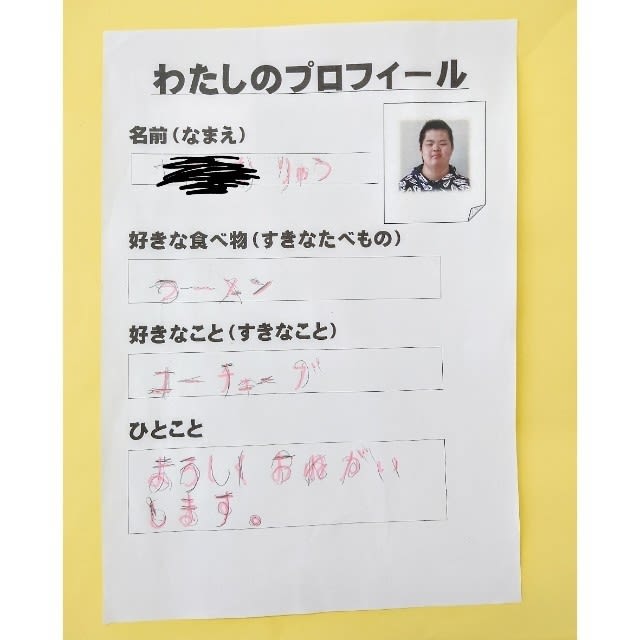 わたしのプロフィール
名前(なまえ)
りゅう
好きな食べ物(すきなたべもの)
ラーメン
好きなこと(すきなこと)
ユーチューブ
ひとこと
よろしくおねがい
します。